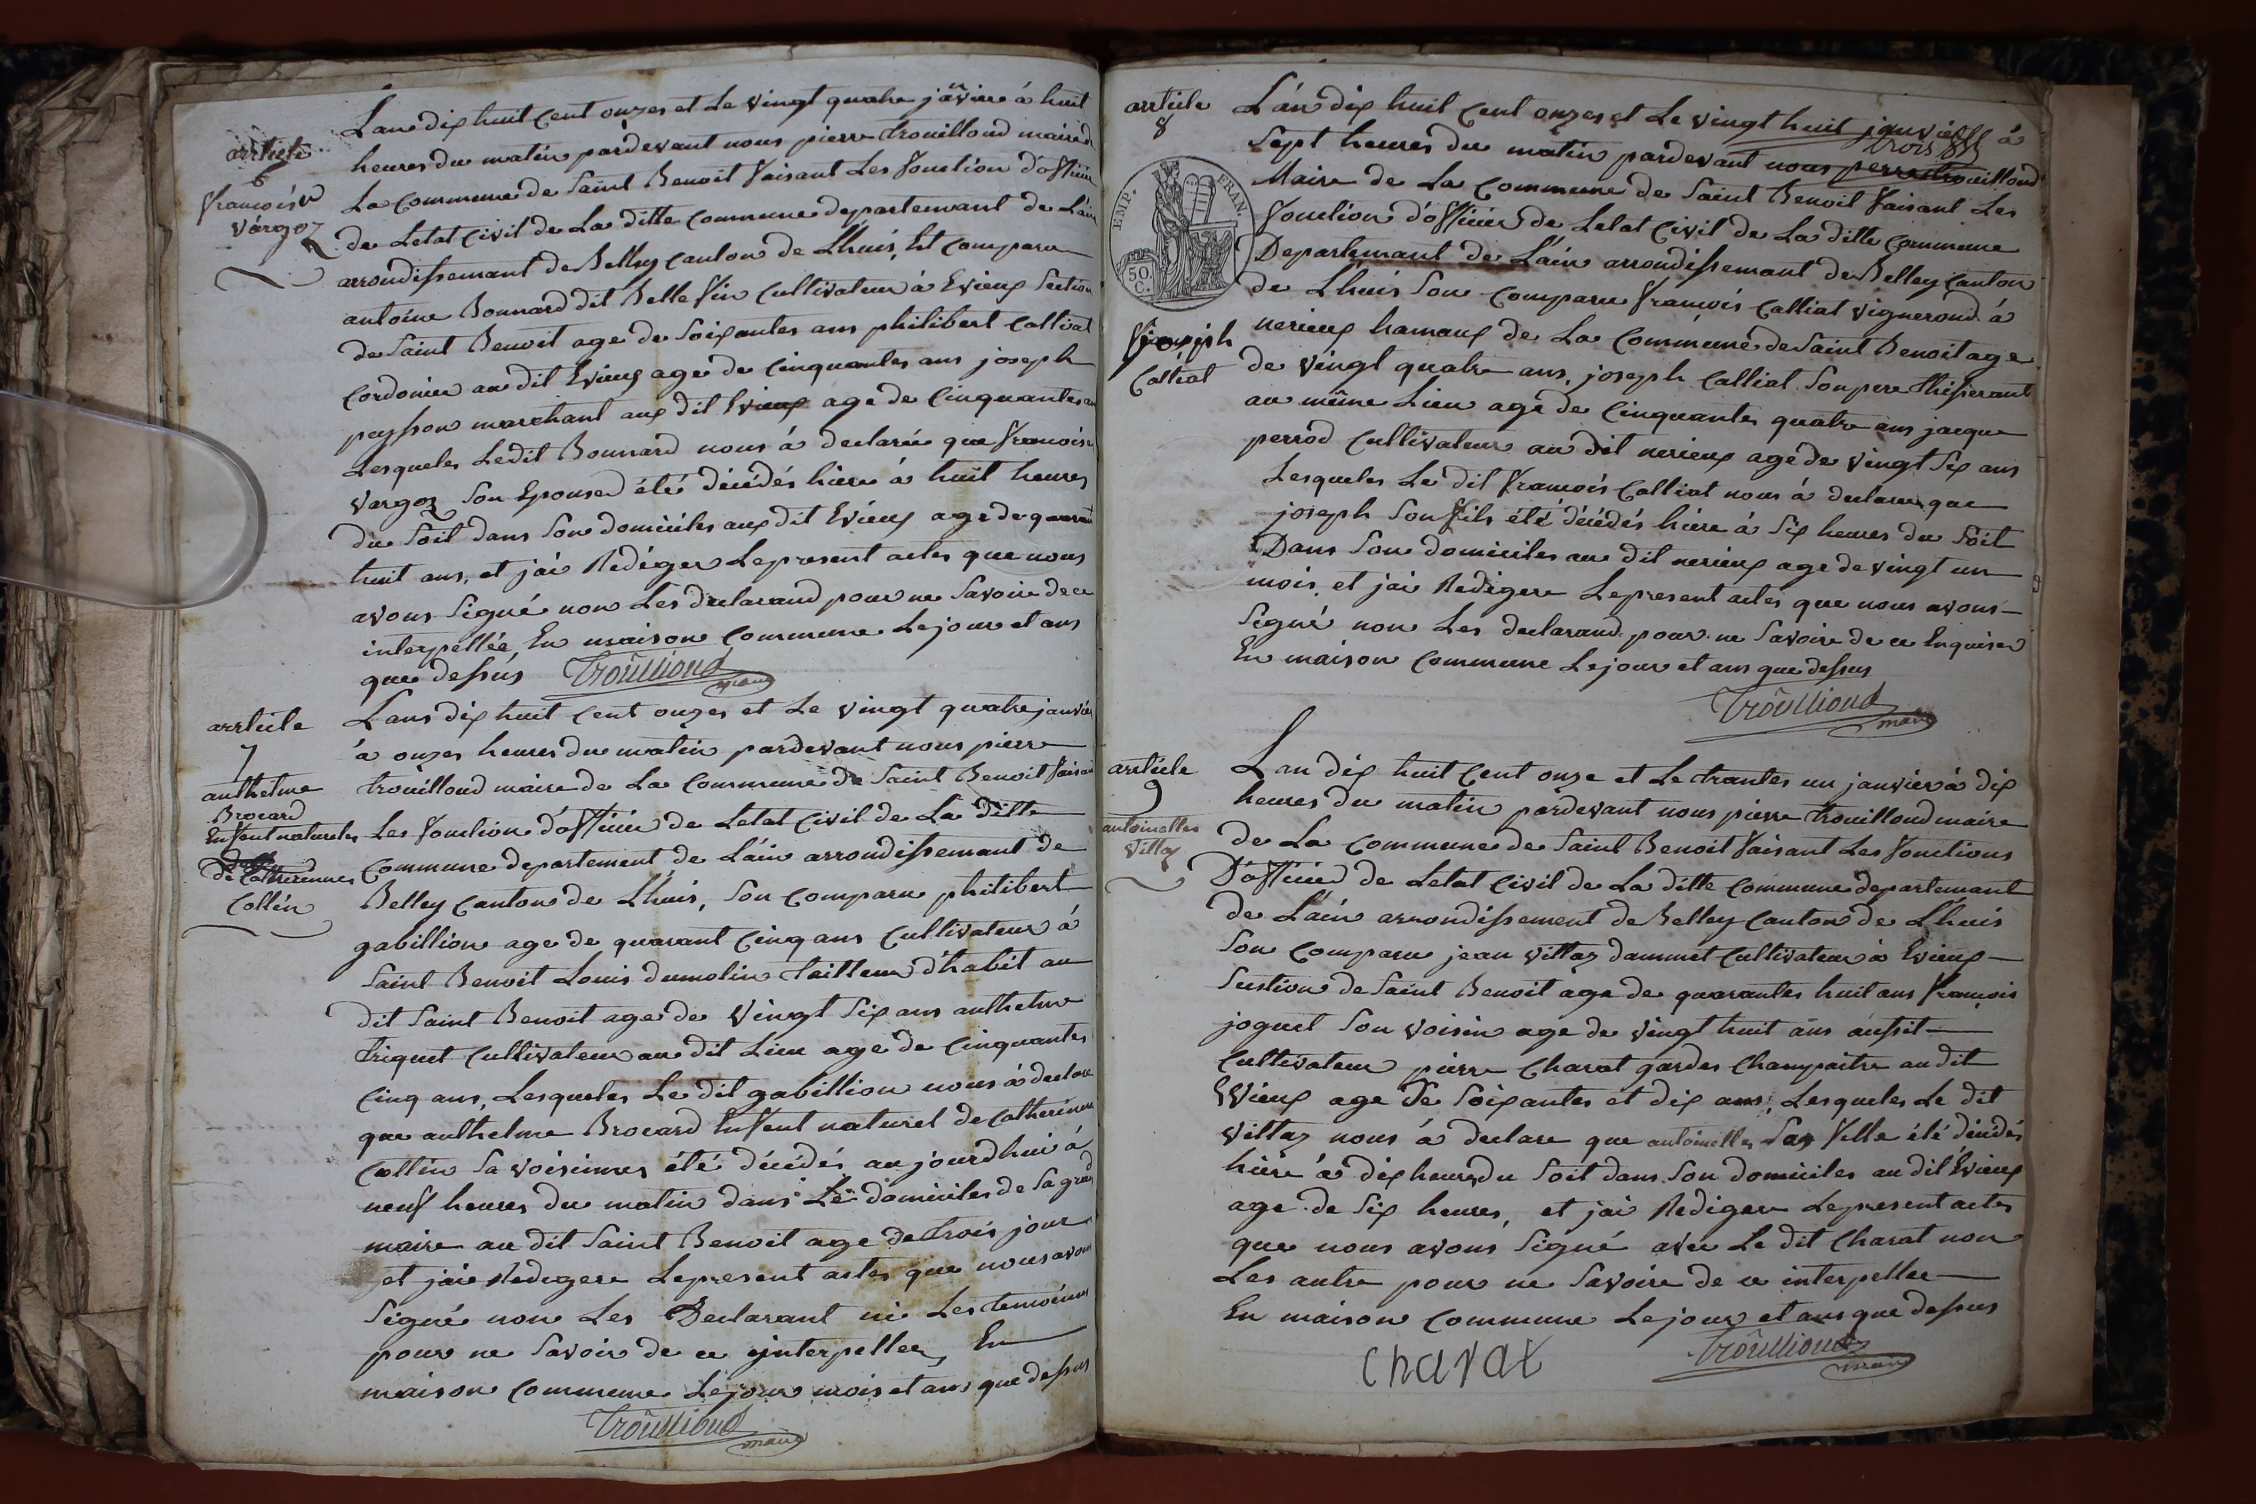 article
6
francoise
vargoz
Lan dix huit Cent onzes et Le vingt quatre janvier à huit
heures du matin pardevant nous pierre trouilloud maire de
La Commune de Saint Benoit faisant Les fonction d'officier
de Letat Civil de La ditte Commune departemant de Láin
arrondissemant de Belley Canton de Lhuis, Est Comparu
antoine Bonnard dit Belle fin Cultivateur à Evieux Section
de Saint Benoit age de Soixantes ans philibert Calliat
Cordonier au dit Evieux age de Cinquantes ans joseph
peysson marchant aux dit Evieux age de Cinquantes ans
Lesqueles Ledit Bonnard nous à declarée que francoise
vargoz Son Epouse été décédés hière à huit heures
du Soit dans Son domiciles aux dit Evieux age de quarant
huit ans, et jai Rediger Lepresent actes que nous
avons Signé non Les declarand pour ne Savoire de ce
interpellée, En maison Commune Lejour et ans
que dessus Trouilloud
maire
arrticle
7
anthelme
Brocard
Enfent natureles
de Catherinnes
Collin
Lans dix huit Cent onzes et Le vingt quatre janvier
à onzes heures du matin pardevant nous pierre
trouilloud maire de La Commune de Saint Benoit faisant
Les fonction d'officier de Letat Civil de La ditte
Commune departement de Láin arrondissemant de
Belley Canton de Lhuis, Son Comparu philibert
gabillion age de quarant Cinq ans Cultivateur à
Saint Benoit Louis dumolin tailleur d'habit au
dit Saint Benoit age de vingt Six ans anthelme
triquet Cultivateur au dit Lieu age de Cinquantes
Cinq ans, Lesqueles Le dit gabillion nous à declare
que anthelme Brocard Enfent naturel de Catherinne
Collin Sa voisinnes été décédés aujourdhui à
neuf heures du matin dans Le domiciles de Sa grand
maire au dit Saint Benoit age de trois jour
et jaie Redigere Lepresent actes que nous avons
Signé non Les Declarant ni Les temoins
pour ne Savoir de ce interpeller, En
maison Commune Lejour mois et ans que dessus
Trouilloud
maire
article
8
EMP. FRAN.
50.
C.
joseph
Calliat
L'án dix huit Cent onzes et Le vingt huit janvier à
trois
Sept heures du matin pardevant nous pierre trouilloud
Maire de La Commune de Saint Benoit faisant Les
fonction d'officier de Letat Civil de La ditte Commune
Departemant de Láin arrondissemant de Belley Canton
de Lhuis Son Comparu francois Calliat vignerond à
nerieux hamaux de La Commune de Saint Benoit age
de vingt quatre ans, joseph Calliat Son pere thisserant
au même Lieu age de Cinquantes quatre ans jacque
perrod Cultivateur au dit nerieux age de vingt Six ans
Lesqueles Le dit francois Calliat nous à declare que
joseph Son fils été décédés hière à Six heures du Soit
Dans Son domiciles au dit nerieux age de vingt un
mois, et jai Redigere Lepresent actes que nous avons
Signé non Les declarand pour ne Savoire de ce Enquiser
En maison Commune Lejour et ans que dessus
Trouilloud
maire
article
9
antoinettes
Villaz
Lan dix huit Cent onze et Le trantes un janvier à dix
heures du matin pardevant nous pierre trouilloud maire
de La Commune de Saint Benoit faisant Les fonctions
D'officier de Letat Civil de La ditte Commune departemant
de Láin arrondissement de Belley Canton de Lhuis
Son Comparu jean villaz dammet Cultivateur à Evieux
Section de Saint Benoit age de quarantes huit ans francois
joguet Son voisin age de vingt huit ans aussit
Cultivateur pierre Charat gardes Champaitre au dit
Evieux age de Soixantes et dix ans, Lesqueles Le dit
villaz nous à declare que antoinettes Sa fille été décédés
hière à dix heures du Soit dans Son domiciles au dit Evieux
age de Six heures, et jai Redigere Lepresent actes
que nous avons Signé avec Le dit Charat non
Les autre pour ne Savoire de ce interpellee
En maison Commune Lejour et ans que dessus
Charat
Trouilloud
maire